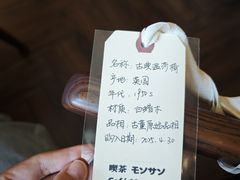 名称: 古典画背椅
产地: 英国
年代: 1950s
材质: 白蜡木
品相: 古董原始品相
购入日期: 2025.4.30
喫茶 モンサン